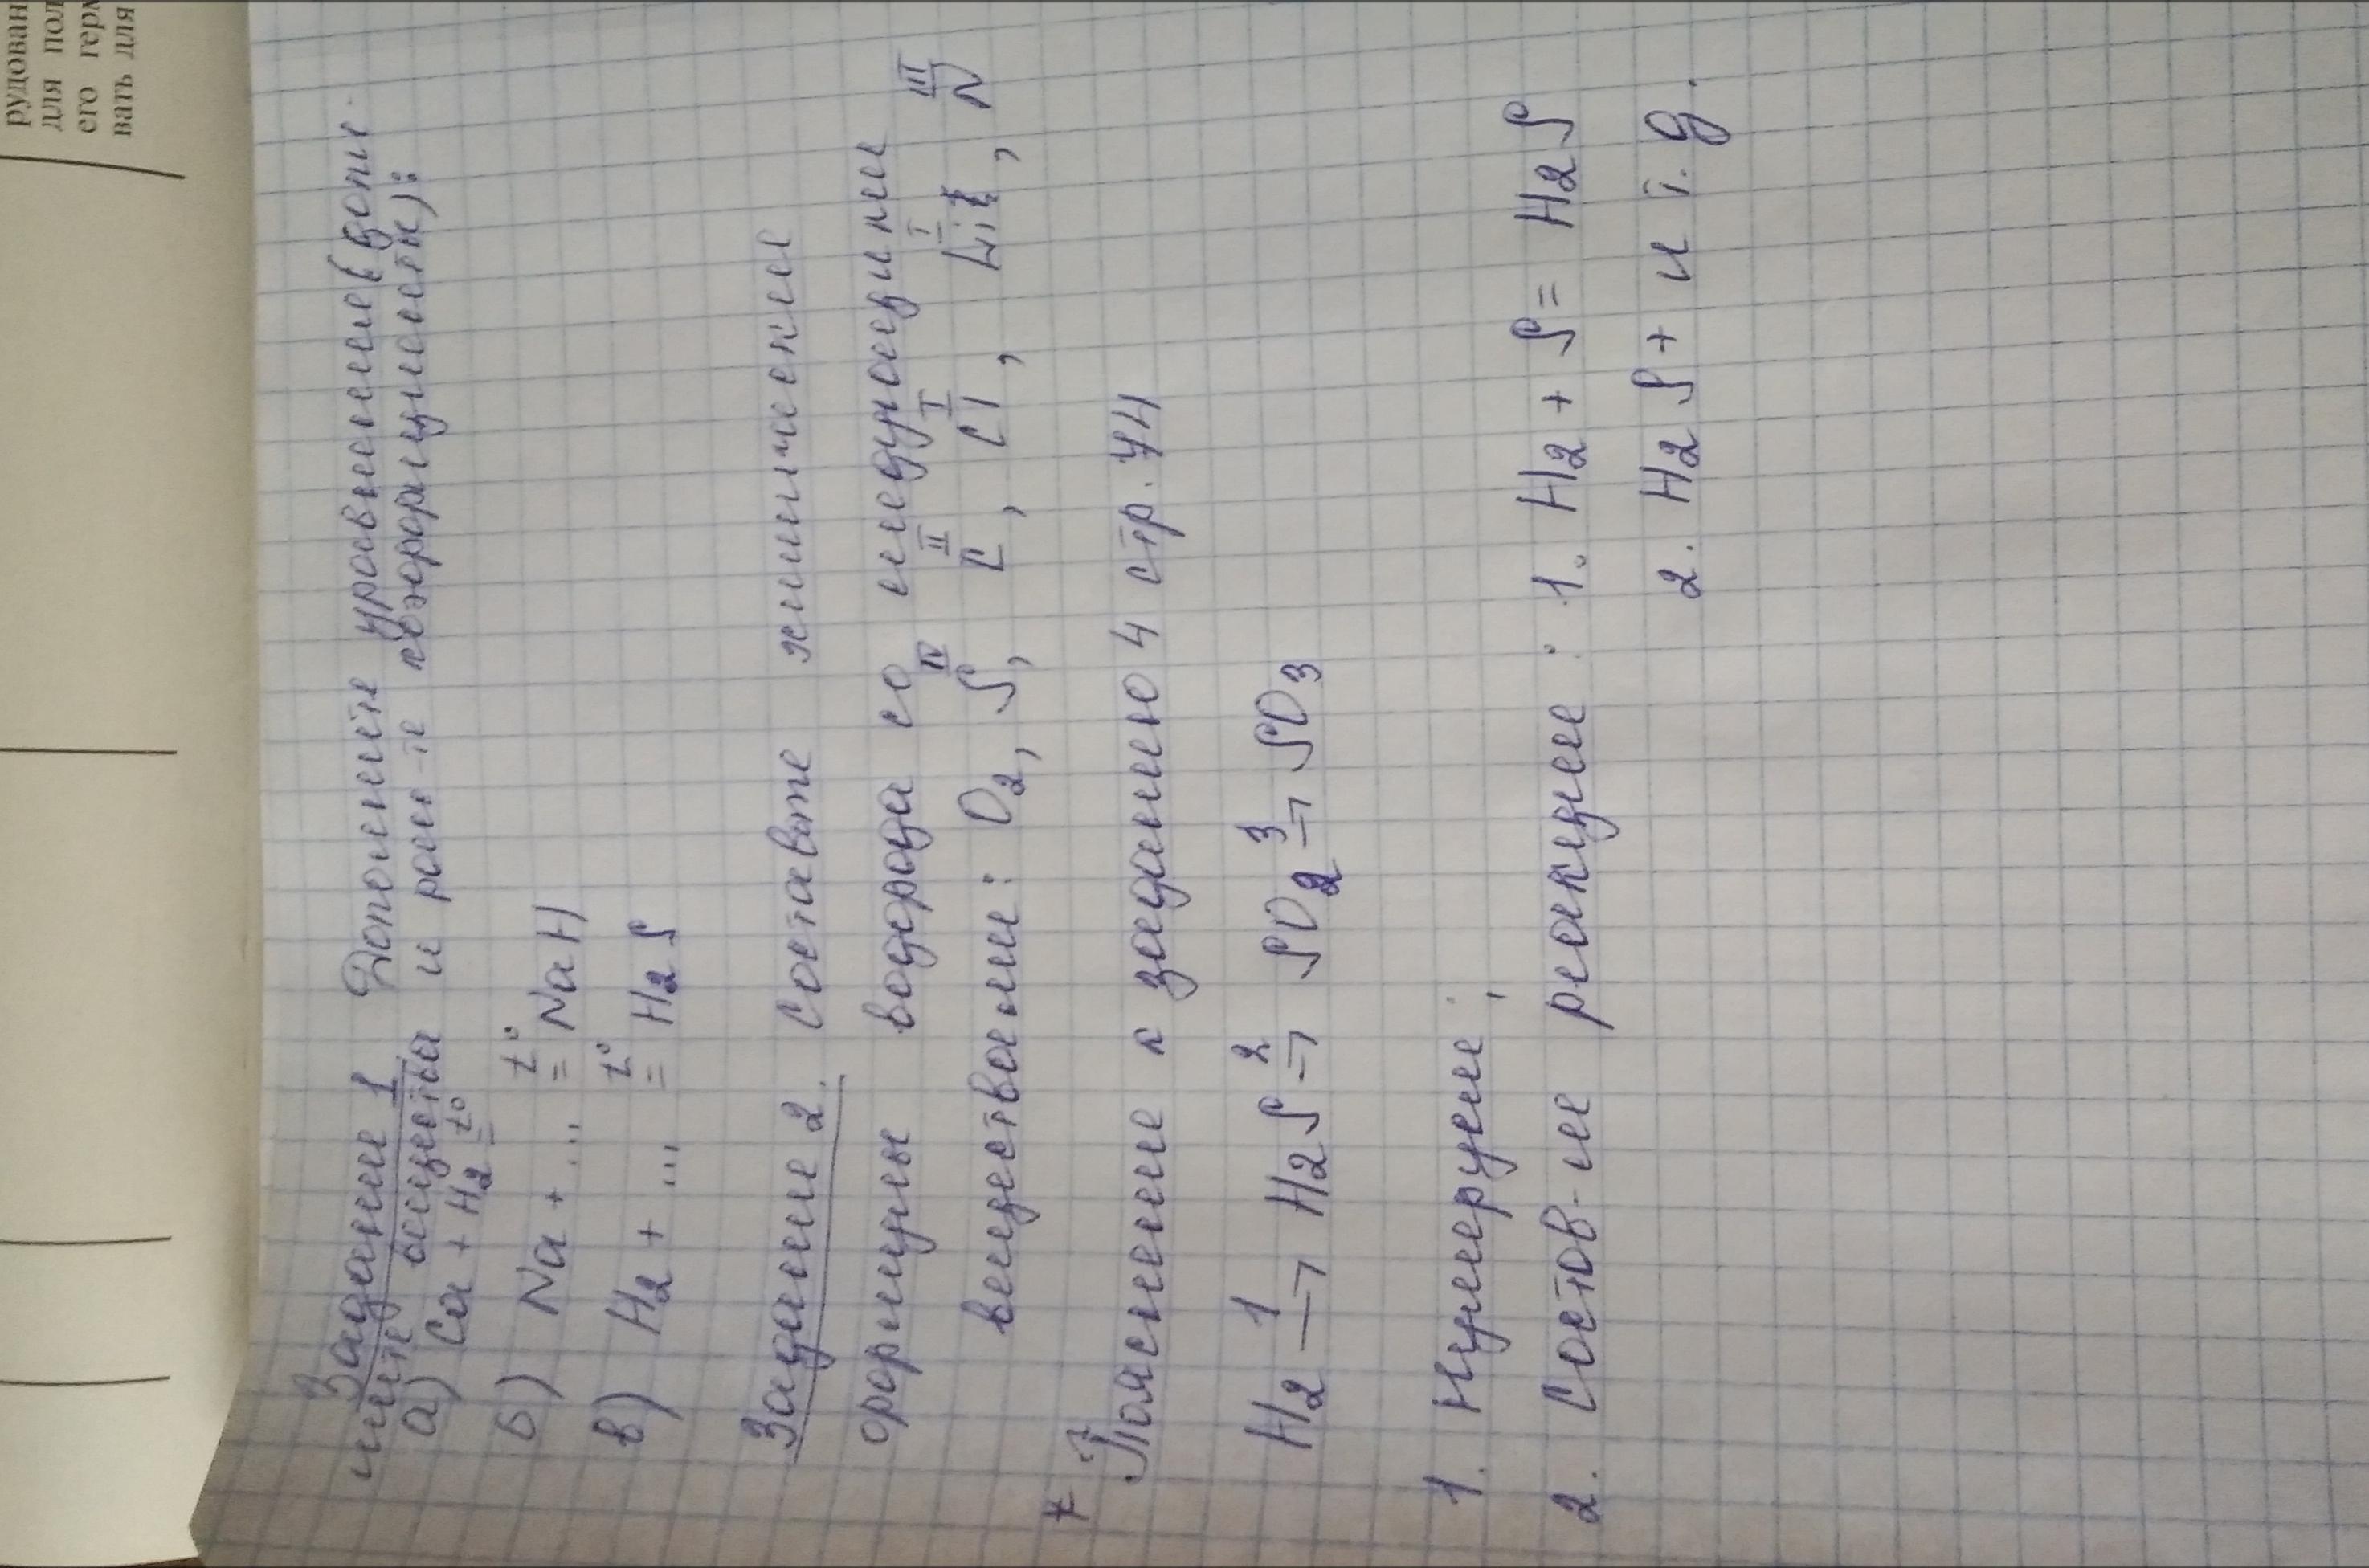 рудован
для пол
его герм
вать для
Задание 1 Дополните уравнение (допи-
шите вещества и расст-те коэффициенты):
а) Ca + H2 =t°
б) Na + ... =t° NaH
в) H2 + ... =t° H2S
Задание 2. Составьте химические
формулы водорода со следующими
веществами: O2, S IV, C II, Cl I, Li I, N III
* Пояснение к заданию 4 стр. 44
H2 1→ H2S 2→ SO2 3→ SO3
1. Нумеруем;
2. Состав-ие реакцие: 1. H2 + S = H2S
2. H2S + и т. д.